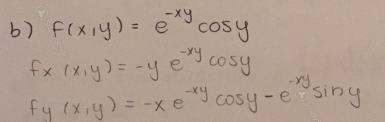 b) f(x,y) = e^{-xy} cosy
fx (x,y) = -y e^{-xy} cosy
fy (x,y) = -x e^{-xy} cosy - e^{-xy} siny